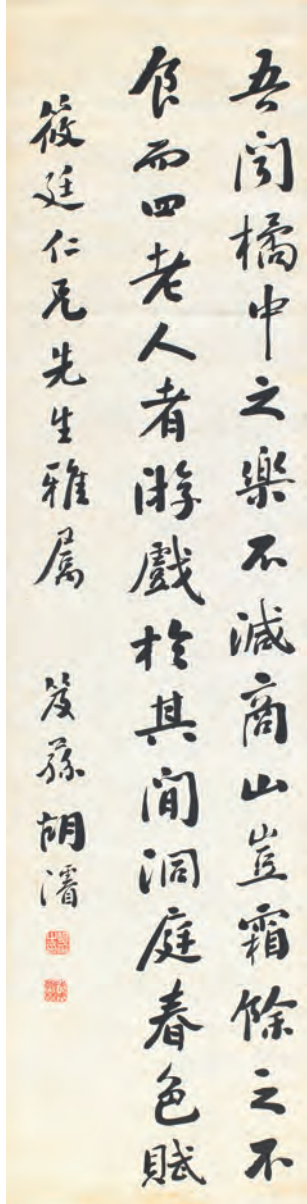 吾闻橘中之樂不減商山豈霜餘之不
食而四老人者游戲於其間洞庭春色賦
筱廷仁兄先生雅屬
笈孫胡濬